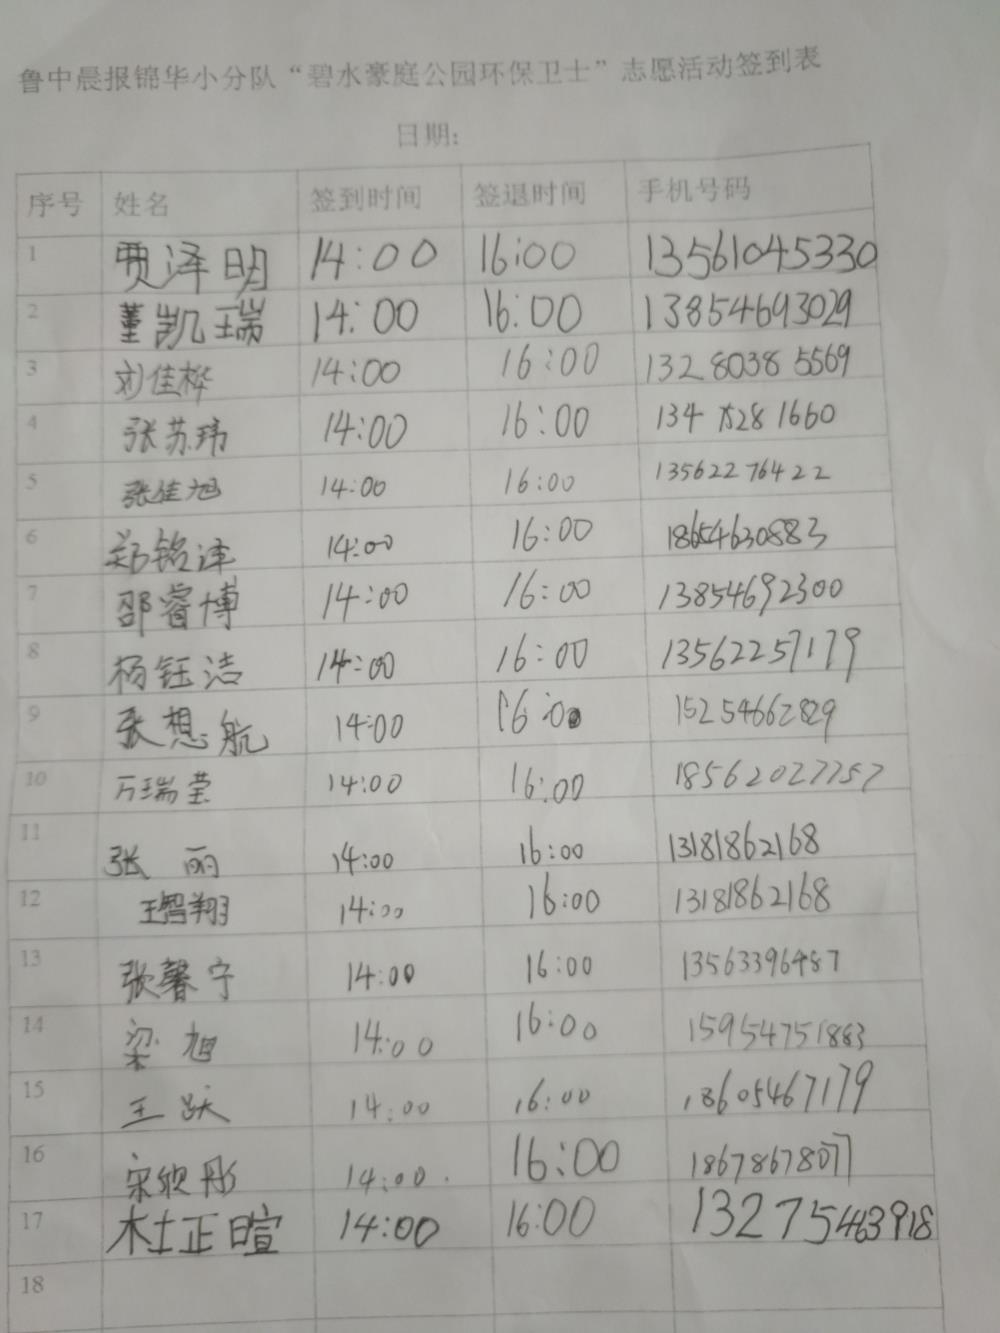 鲁中晨报锦华小分队“碧水豪庭公园环保卫士”志愿活动签到表
日期：
序号 姓名 签到时间 签退时间 手机号码
1 贾泽明 14:00 16:00 13561045330
2 董凯瑞 14:00 16:00 13854693029
3 刘佳桦 14:00 16:00 13280385569
4 张苏玮 14:00 16:00 134 1660
5 张佳旭 14:00 16:00 13562276422
6 郑铭泽 14:00 16:00 18654630883
7 邵睿博 14:00 16:00 13854692300
8 杨钰洁 14:00 16:00 13562257179
9 张想航 14:00 16:00 15254662829
10 万瑞莹 14:00 16:00
11 张丽 14:00 16:00 13181862168
12 王智翔 14:00 16:00 13181862168
13 张馨宁 14:00 16:00 13563396487
14 梁旭 14:00 16:00 15954751883
15 王跃 14:00 16:00 18605467179
16 宋欣彤 14:00 16:00 18678678077
17 杜正暄 14:00 16:00 13275463918
18